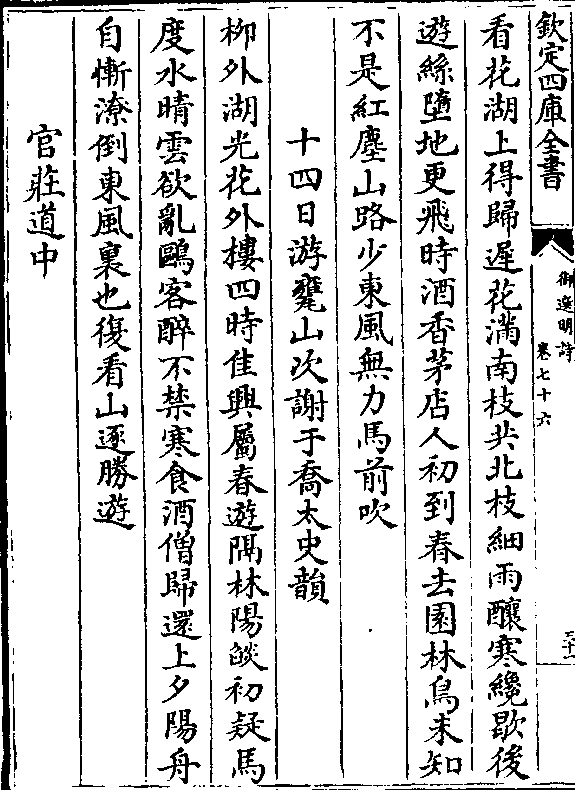 欽定四庫全書
御選明詩
卷七十六
三十一
看花湖上得歸遲花滿南枝共北枝細雨釀寒纔歇後
遊絲墮地更飛時酒香茅店人初到春去園林鳥未知
不是紅塵山路少東風無力馬前吹
十四日游甕山次謝于喬太史韻
柳外湖光花外樓四時佳興屬春遊隔林陽燄初疑馬
度水晴雲欲亂鷗客醉不禁寒食酒僧歸還上夕陽舟
自慚潦倒東風裏也復看山逐勝遊
官莊道中